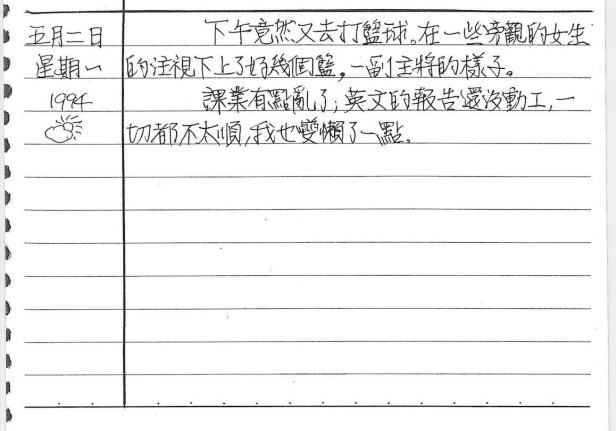 五月二日
星期一
1994
下午竟然又去打籃球。在一些旁觀的女生
的注視下上了好幾個籃，一副主將的樣子。
課業有點亂了，英文的報告還沒動工，一
切都不太順，我也變懶了一點。